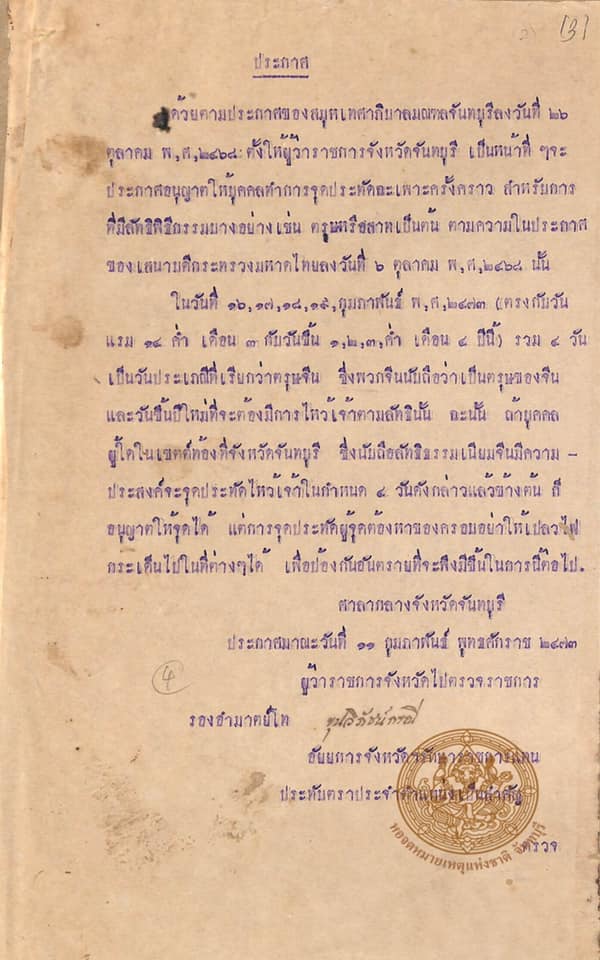 (3)
2)
ประกาศ
ด้วยตามประกาศของสมุหเทศาภิบาลมณฑลจันทบุรีลงวันที่ ๒๖
ตุลาคม พ,ศ,๒๔๖๘ ตั้งให้ผู้ว่าราชการจังหวัดจันทบุรี เป็นหน้าที่ ๆจะ
ประกาศอนุญาตให้บุคคลทำการจุดประทัดฉะเพาะครั้งคราว สำหรับการ
ที่มีลัทธิพิธีกรรมบางอย่างเช่น ตรุษหรือสาทเป็นต้น ตามความในประกาศ
ของเสนาบดีกระทรวงมหาดไทยลงวันที่ ๖ ตุลาคม พ,ศ,๒๔๖๘ นั้น
ในวันที่ ๑๖,๑๗,๑๘,๑๙,กุมภาพันธ์ พ,ศ,๒๔๗๓ (ตรงกับวัน
แรม ๑๔ ค่ำ เดือน ๓ กับวันขึ้น ๑,๒,๓,ค่ำ เดือน ๔ ปีนี้) รวม ๔ วัน
เป็นวันประเภณีที่เรียกว่าตรุษจีน ซึ่งพวกจีนนับถือว่าเป็นตรุษของจีน
และวันขึ้นปีใหม่ที่จะต้องมีการไหว้เจ้าตามลัทธินั้น ฉะนั้น ถ้าบุคคล
ผู้ใดในเขตต์ท้องที่จังหวัดจันทบุรี ซึ่งนับถือลัทธิธรรมเนียมจีนมีความ -
ประสงค์จะจุดประทัดไหว้เจ้าในกำหนด ๔ วันดังกล่าวแล้วข้างต้น ก็
อนุญาตให้จุดได้ แต่การจุดประทัดผู้จุดต้องหาของครอบอย่าให้เปลวไฟ
กระเด็นไปในที่ต่างๆได้ เพื่อป้องกันอันตรายที่จะพึงมีขึ้นในการนี้ต่อไป.
ศาลากลางจังหวัดจันทบุรี
ประกาศมาณะวันที่ ๑๑ กุมภาพันธ์ พุทธศักราช ๒๔๗๓
ผู้ว่าราชการจังหวัดไปตรวจราชการ
๔
รองอำมาตย์โท
อัยยการจังหวัดรักษาราชการแทน
ประทับตราประจำตำแหน่งเป็นสำคัญ
ตรวจ
หอจดหมายเหตุแห่งชาติ จันทบุรี